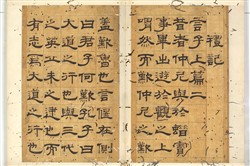 禮記
言子上篇二
昔者仲尼與於蜡賓
事畢出遊於觀之上
喟然而歎仲尼之歎
蓋歎魯也言偃在側
曰君子何歎孔子曰
大道之行也與三代
之英丘未之逮也而
有志焉大道之行也